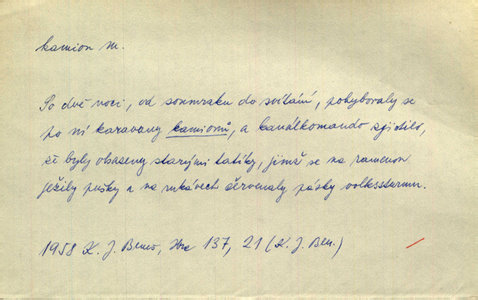 kamion m.
Po dvě noci, od soumraku do svítání, pohybovaly se
po ní karavany kamionů, a kanálkomando zjistilo,
že byly obsazeny starými tatíky, jimž se na ramenou
ježily pušky a na rukávech červenaly pásky volkssturmu.
1958 K. J. Beneš, 137, 21 (K. J. Ben.)